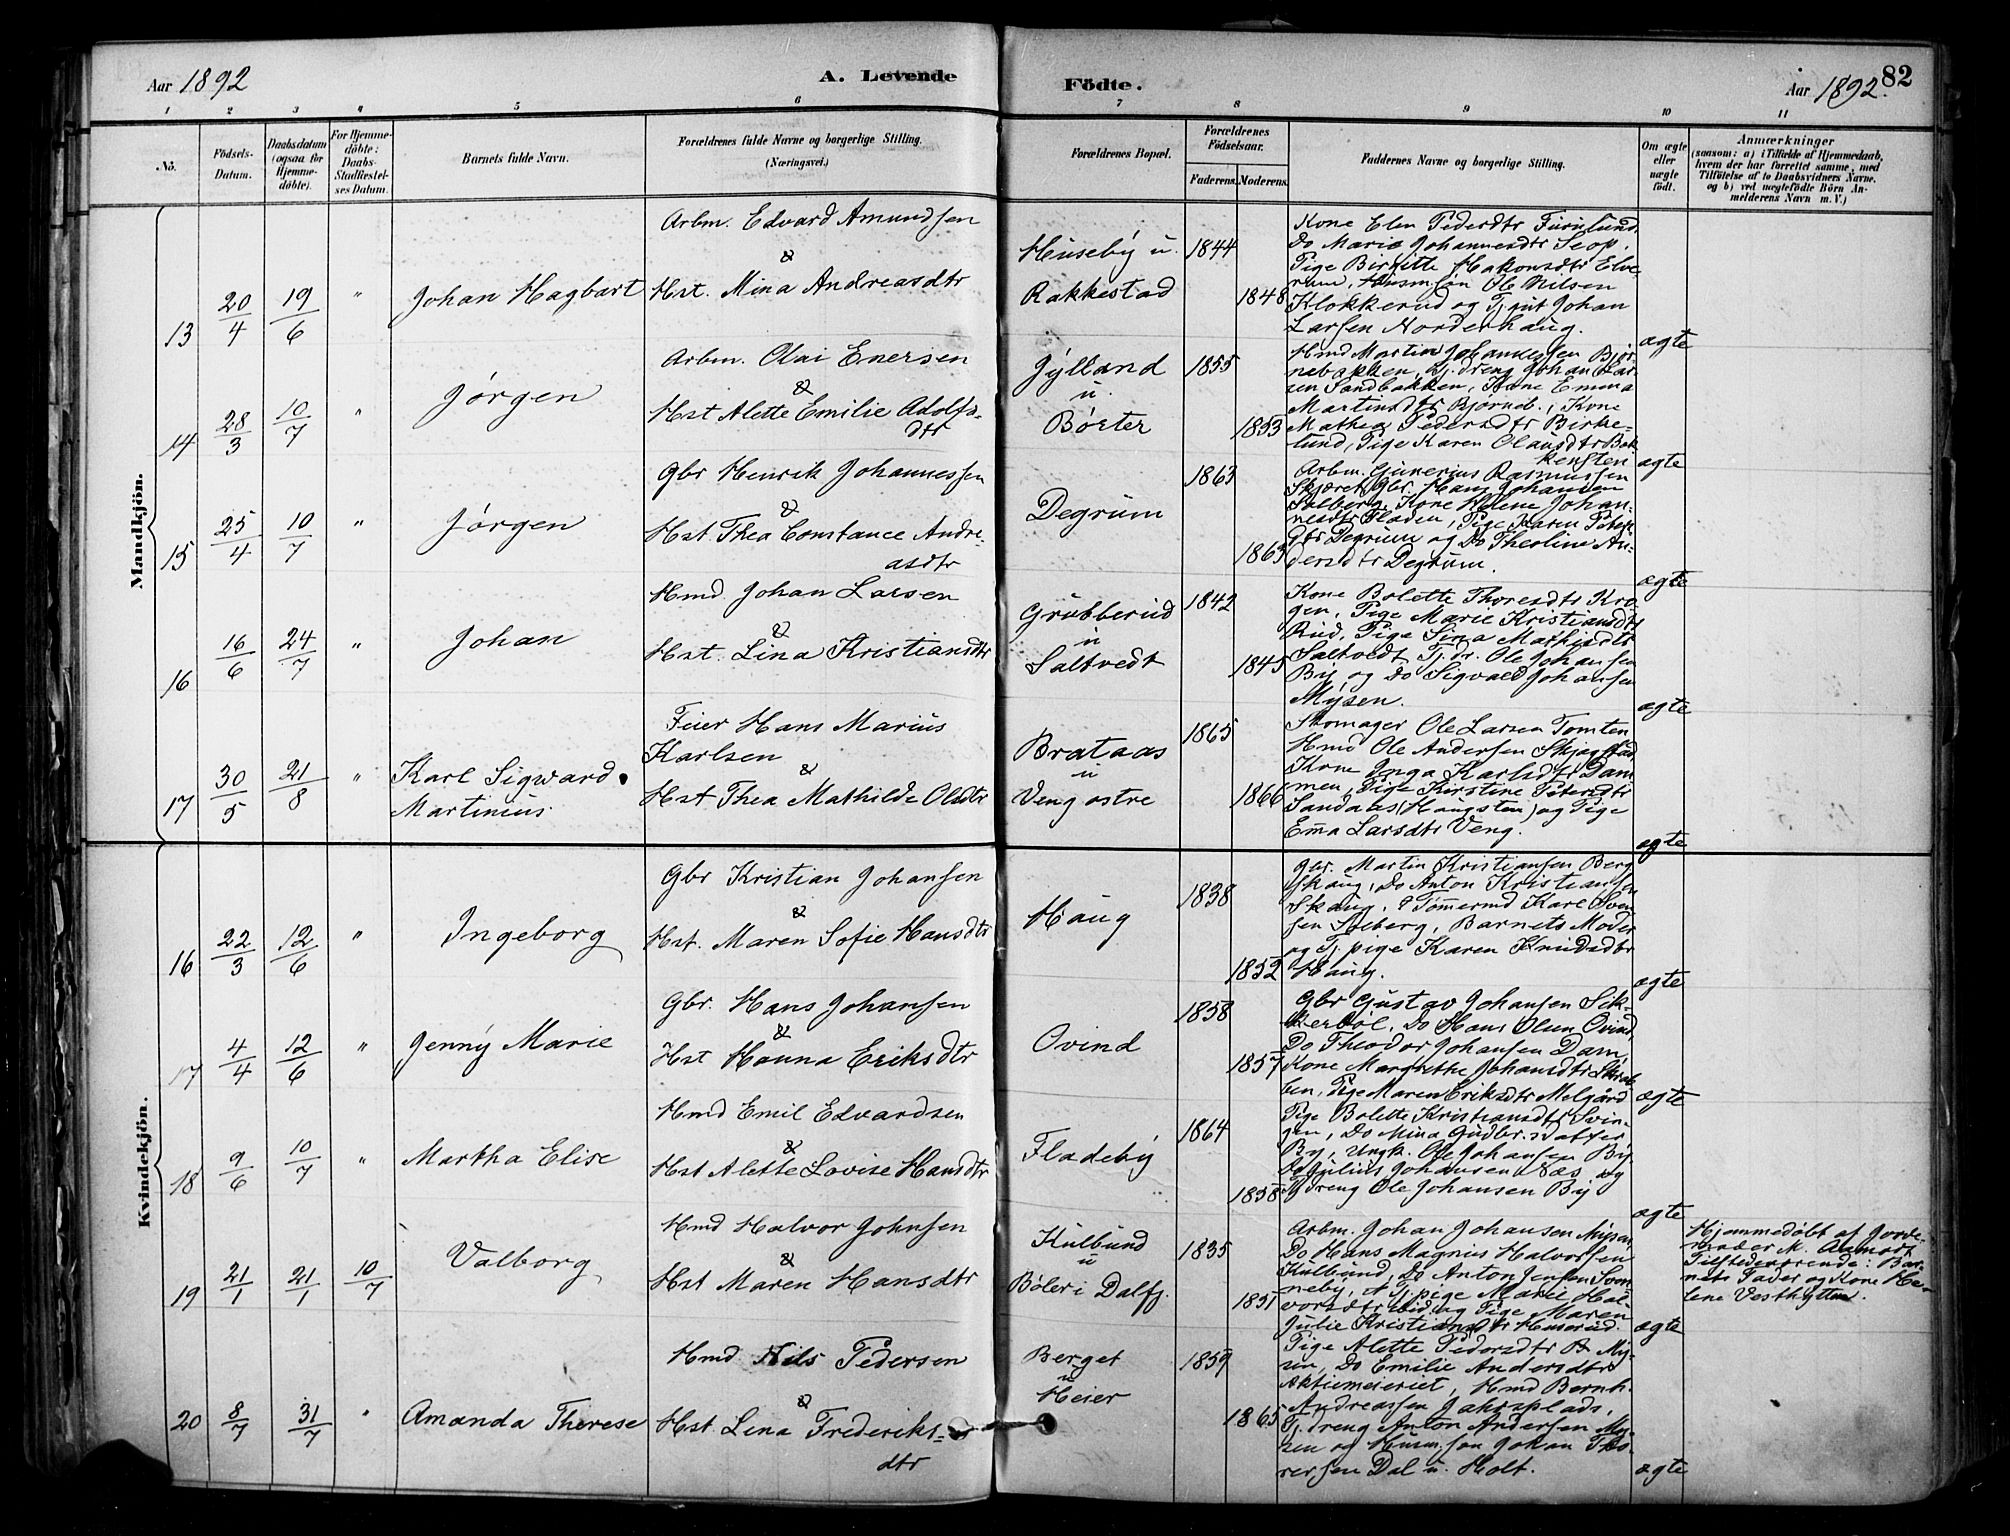 Aar 1892 A. Levende
Födte. Aar 1892. 82
1 2 3 4 5 6 7 8 9 10 11
No.
Födsels-
Datum.
Daabsdatum
(ogsaa for
Hjemme-
döbte).
For Hjemme-
döbte:
Daabs-
Stadfæstel-
ses Datum.
Barnets fulde Navn.
Forældrenes fulde Navne og borgerlige Stilling.
(Næringsvei.)
Forældrenes Bopæl.
Forældrenes
Födselsaar.
Faderens. Moderens.
Faddernes Navne og borgerlige Stilling.
Om ægte
eller
uægte
födt.
Anmærkninger
(saasom: a) i Tilfælde af Hjemmedaab,
hvem der har forrettet samme, med
Tilföielse af to Daabsvidners Navne.
og b) ved uægtefödte Börn An-
melderens Navn m. V.)
Mandkjön.
13 20/4 19/6 " Johan Hagbart
Arbm. Edvard Amundsen
&
Hst. Mina Andreasdtr
Huseby u.
Rakkestad
1844
1848
Kone Elen Pedersdtr Furulund
Do Maria Johannesdtr Seop.
Pige Birgitte Hakonsdtr Elve
rum, Husm.søn Ole Nilsen
Klokkerud og Tj.gut Johan
Larsen Norderhaug.
ægte
14 28/3 10/7 " Jørgen
Arbm. Olai Enersen
&
Hst Alette Emilie Adolfs-
dtr
Jylland
u.
Børter
1855
1853
Hmd Martin Johannesen Bjør-
nebakken, Tj. dreng Johan Lar-
sen Sandbakken, Kone Emma
Martinsdtr Bjørneb., Kone
Mathea Pedersdtr Birke-
lund, Pige Karen Olausdtr Bak
kensten
ægte
15 25/4 10/7 " Jørgen
Gbr Henrik Johannessen
&
Hst Thea Constance Andre-
asdtr
Degrum
1863
1863
Arbm. Gunerius Rasmussen
Skjæret, Gbr. Hans Johansen
Solberg, Kone Helene Johan-
nesdtr Fladen, Pige Karen Peters
dtr Degrum og Do Theoline An-
dersdtr Degrum.
ægte
16 16/6 24/7 " Johan
Hmd. Johan Larsen
&
Hst. Lina Kristiansdtr
Grubberud
u
Saltvedt
1842
1845
Kone Bolette Thoresdtr Kro-
gen, Pige Marie Kristiansdtr
Rud, Pige Lina Mathisdtr
Saltvedt, Tj. dr. Ole Johansen
By og Do Sigvald Johansen
Mysen.
ægte
17 30/5 21/8 " Karl Sigward
Martinius
Feier Hans Marius
Karlsen
&
Hst Thea Mathilde Olsdtr
Brataas
u
Veng østre
1865
1866
Skomager Ole Larsen Tomten
Hmd Ole Andersen Skjagstad,
Kone Inga Karlsdtr Dam
men, Pige Kirstine Petersdtr
Sandaas (Haugsten) og Pige
Emma Larsdtr Veng.
ægte
Kvindekjön.
16 22/3 12/6 " Ingeborg
Gbr Kristian Johansen
&
Hst. Maren Sofie Hansdtr
Haug
1838
1852
Gbr. Martin Kristiansen Berg
skaug, Do Anton Kristiansen
Skaug, Tømmermd Karl Sven
sen Solberg, Barnets Moder
og Tj. pige Karen Knudsdtr
Haug.
ægte
17 4/4 12/6 " Jenny Marie
Gbr. Hans Johansen
&
Hst Hanna Eriksdtr
Ovind
1858
1857
Gbr Gustav Johansen Sik-
kerbøl, Do Hans Olsen Ovind,
Do Theodor Johansen Dam,
Kone Margrethe Johansdtr Skrab
ben, Pige Maren Eriksdtr Melgård
ægte
18 9/6 10/7 " Martha Elise
Hmd Emil Edvardsen
&
Hst Alette Lovise Hansdtr
Fladeby
1864
1858
Pige Bolette Kristiansdtr Svin-
gen, Do Mina Gudbr.datter
By, Ungk. Ole Johansen By
Do Julius Johansen Næs og
Tj dreng Ole Johansen By
ægte
19 21/1 21/1 10/7 Valborg
Hmd Halvor Johnsen
&
Hst Maren Hansdtr
Kulbund
u
Bøler i Dalfj.
1835
1851
Arbm. Johan Johansen Mysen,
Do Hans Magnus Halvorsen
Kulbund, Do Anton Jensen Som
neby, Tj pige Marie Hal-
vorsdtr ibid. og Pige Maren
Julie Kristiansdtr Huserud.
ægte
Hjemmedøbt af Jorde-
moder M. Aamodt
Tilstedeværende: Bar-
nets Fader og Kone He-
lene Vesthytten.
20 8/7 31/7 " Amanda Therese
Hmd Nils Pedersen
&
Hst. Lina Frederiks-
dtr
Berget
u
Heier
1859
1865
Pige Alette Pedersdtr My-
sen, Do Emilie Andersdtr
Aktiemeieriet, Hmd Bernh.
Andreassen Jahrsplads,
Tj. dreng Anton Andersen My-
sen og Husm.søn Johan Tho-
rersen Dal u. Holt.
ægte